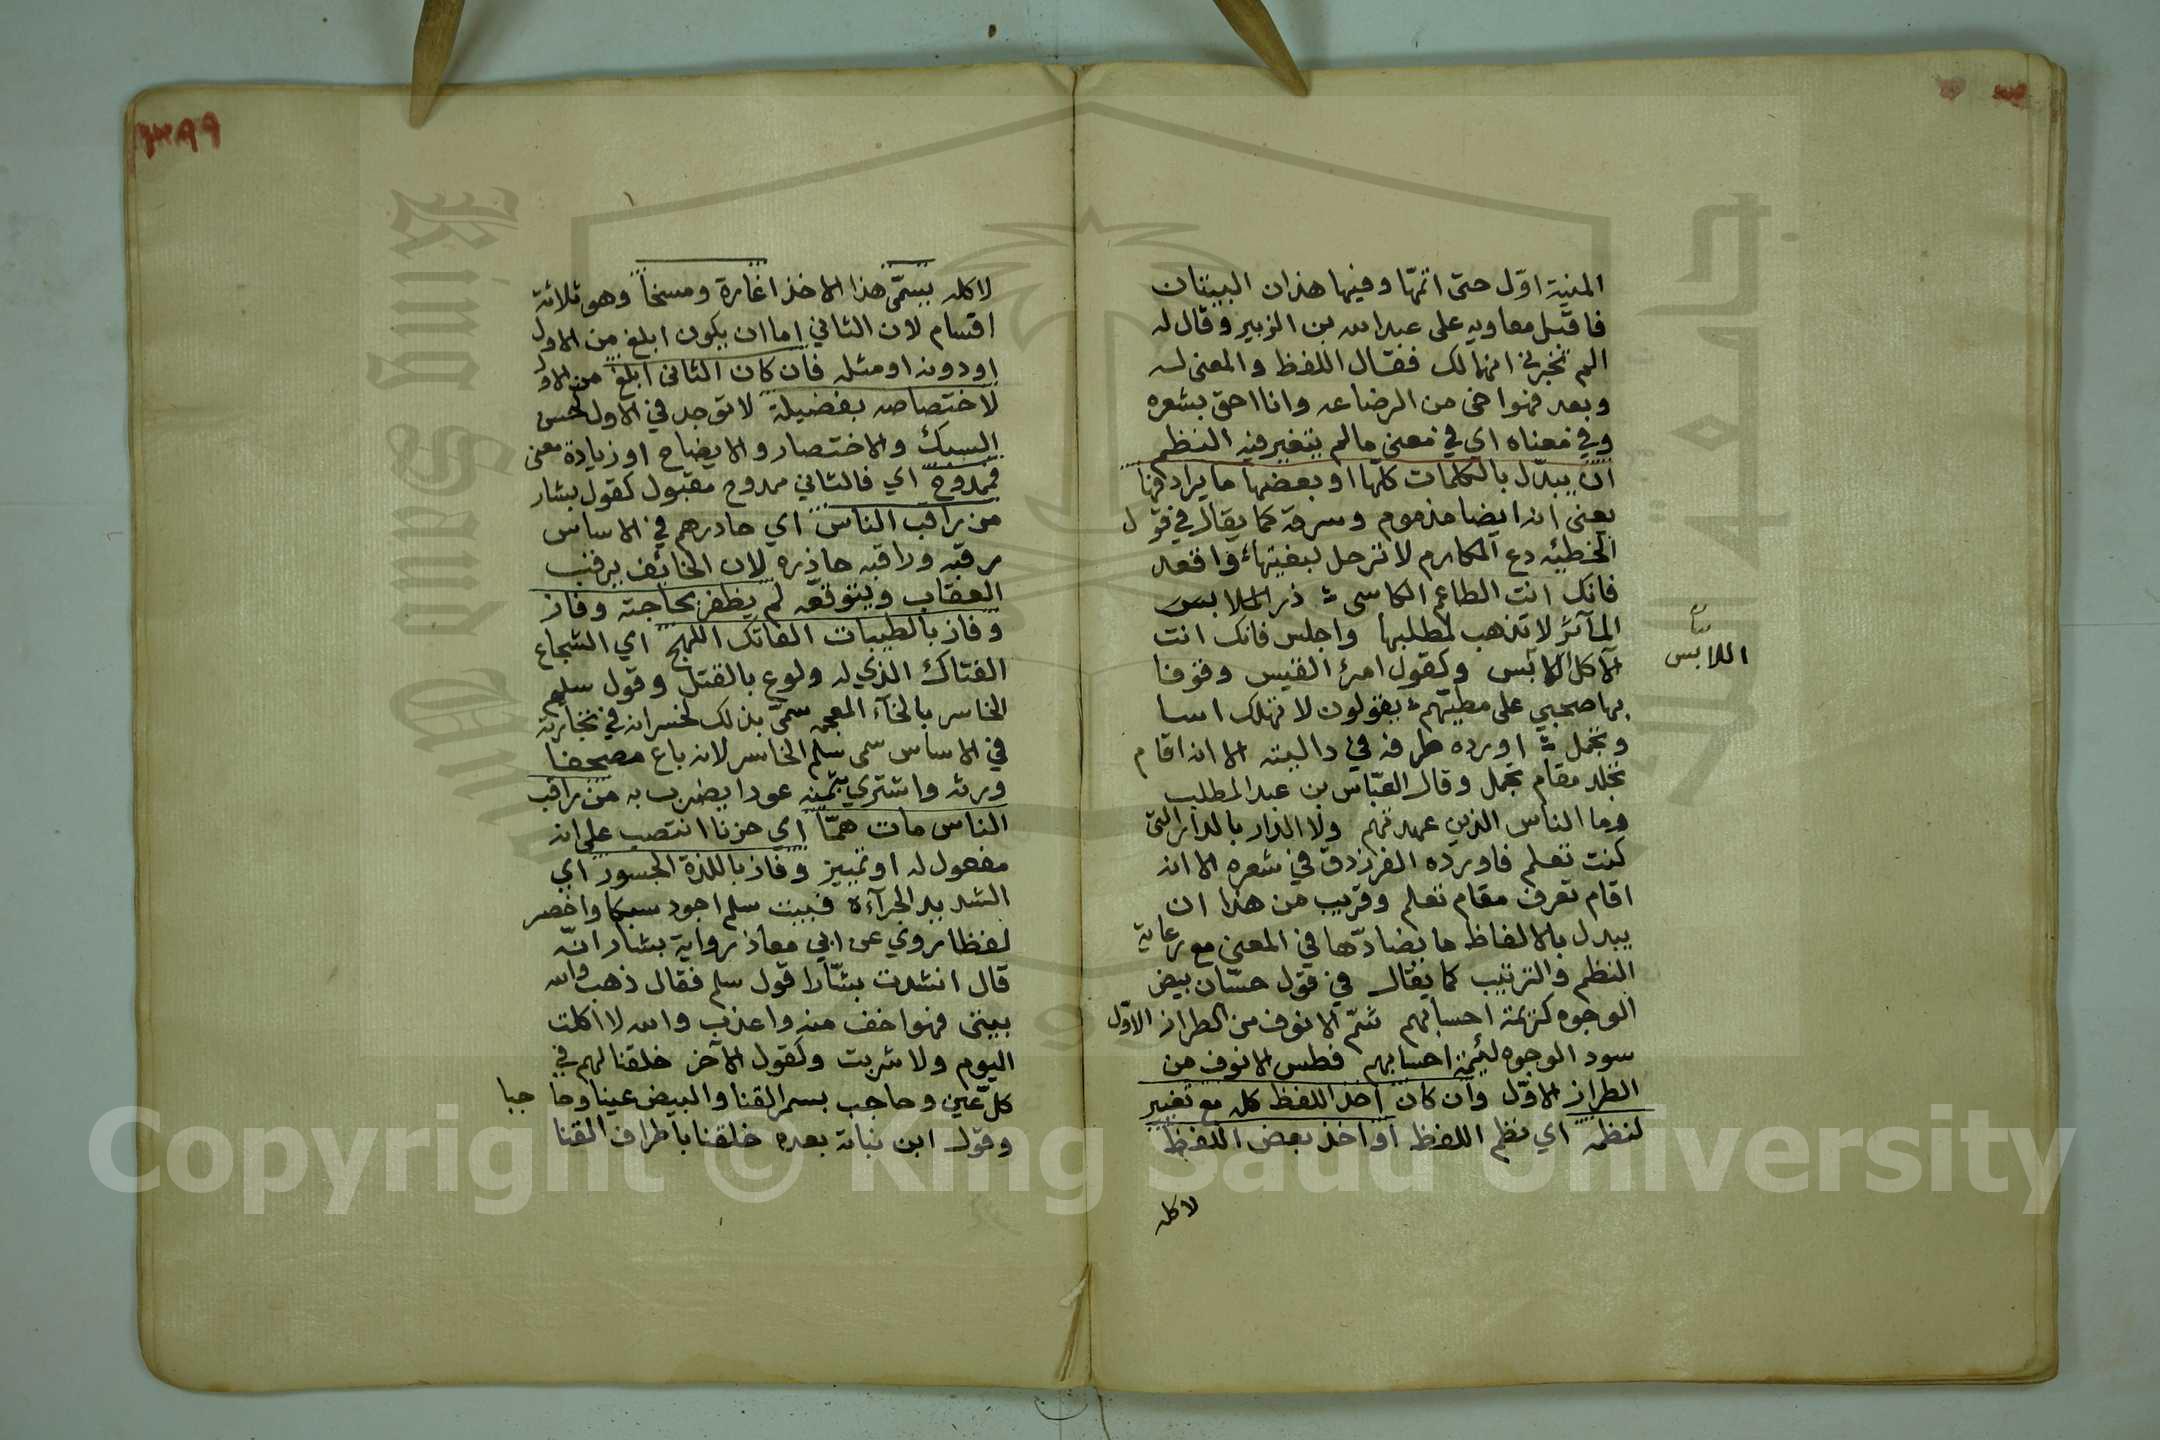 المنية اوّل حتى اتمّها وفيها هذان البيتان
فاقبل معاويه على عبد الله بن الزبير وقال له
الم تخبرني انها لك فقال اللفظ والمعنى له
وبعد فهو اخي من الرضاعه وانا احق بشعره
وفي معناه اي في معنى ما لم يتغير فيه النظم
ان يبدّل بالكلمات كلها او بعضها ما يرادفها
يعني انه ايضا مذموم وسرقة كما يقال في قول
الحطيئه دع المكارم لا ترحل لبغيتها واقعد
فانك انت الطاعم الكاسي ذر
المآثر لا تذهب لمطلبها واجلس فانك انت
الآكل اللابس وكقول امرئ القيس وقوفا
بها صحبي على مطيّهم يقولون لا تهلك اسا
وتجمل اورده طرفه في داليته الا انه اقام
تجلد مقام تجمل وقال العبّاس بن عبد المطلب
وما الناس الذين عهدتهم ولا الدار بالدار التي
كنت تعلم فاورده الفرزدق في شعره الا انه
اقام تعرف مقام تعلم وقريب من هذا ان
يبدل بالالفاظ ما يضادّها في المعنى مع رعاية
النظم والترتيب كما يقال في قول حسّان بيض
الوجوه كريمة احسابهم شمّ الانوف من الطراز الاوّل
سود الوجوه لئيمة احسابهم فطس الانوف من
الطراز الاوّل وان كان اخذ اللفظ كله مع تغيير
لنظمه اي نظم اللفظ او اخذ بعض اللفظ
لا كله
اللابس
لا كله يسمّى هذا الاخذ اغارة ومسخا وهو ثلاثة
اقسام لان الثاني اما ان يكون ابلغ من الاول
او دونه او مثله فان كان الثاني ابلغ من الاول
لاختصاصه بفضيلة لا توجد في الاول كحسن
السبك والاختصار والايضاح او زيادة معنى
فممدوح اي فالثاني ممدوح مقبول كقول بشار
من راقب الناس اي حاذرهم في الاساس
رقبه وراقبه حاذره لان الخائف يرقب
العقاب ويتوقعه لم يظفر بحاجته وفاز
وفاز بالطيبات الفاتك اللهج اي الشجاع
الفتاك الذي له ولوع بالقتل وقول سلم
الخاسر بالخآء المعجمه سميّ بذلك لخسرانه في تجارته
في الاساس سمى سلم الخاسر لانه باع مصحفا
ورثه واشتري بثمنه عودا يضرب به من راقب
الناس مات همّا اي حزنا انتصب على انه
مفعول له او تمييز وفاز باللذة الجسور اي
الشديد الجرآءة فبيت سلم اجود سبكا واخصر
لفظا روي عن ابي معاذ رواية بشار انّه
قال انشدت بشّارا قول سلم فقال ذهب والله
بيتى فهو اخف منه واعذب والله لا اكلت
اليوم ولا شربت وكقول الآخر خلقنا لهم في
كل عين وحاجب بسمر القنا والبيض عينا وحا جبا
وقول ابن نباتة بعده خلقنا باطراف القنا
Copyright © King Saud University
King Saud University